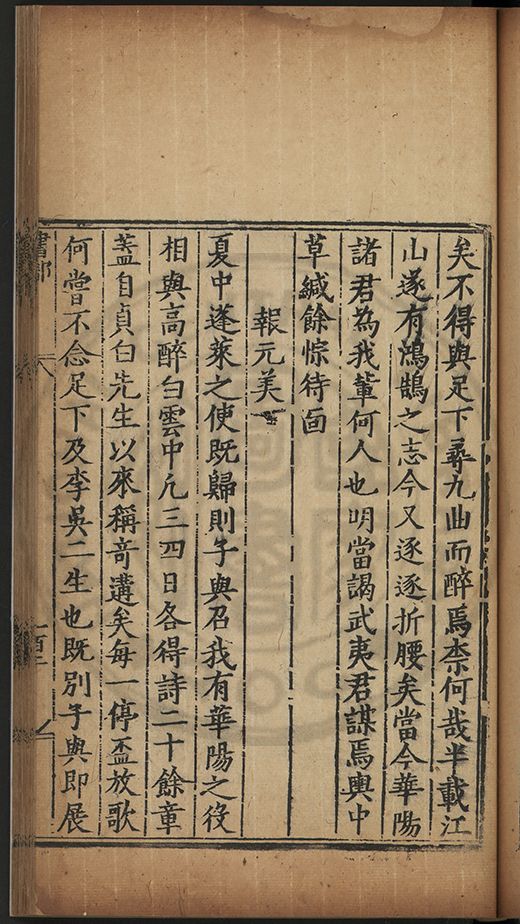 矣不得與足下尋九曲而醉焉柰何哉半載江
山遂有鴻鵠之志今又逐逐折腰矣當今華陽
諸君為我軰何人也明當謁武夷君謀焉輿中
草緘餘悰待面
報元美
夏中蓬萊之使既歸則子與召我有華陽之役
相與高醉白雲中凢三四日各得詩二十餘章
盖自貞白先生以來稱奇遘矣每一停盃放歌
何嘗不念足下及李吳二生也既別子與即展
書部